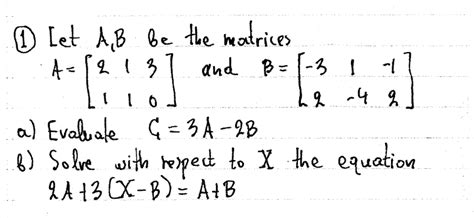 ① Let A,B be the matrices
A = [2 1 3; 1 1 0] and B = [-3 1 -1; 2 -4 2]
a) Evaluate G = 3A - 2B
b) Solve with respect to X the equation
2A + 3(X-B) = A+B